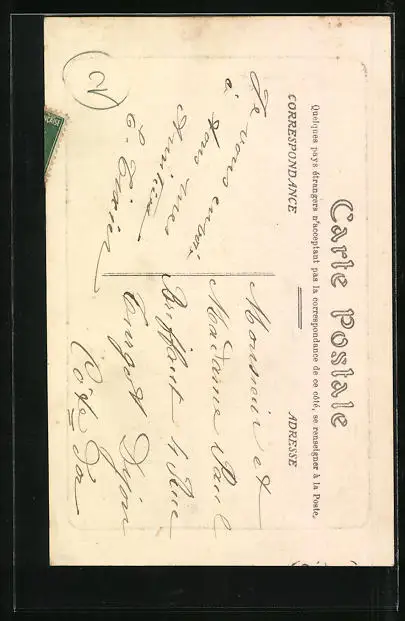 Carte Postale
Quelques pays étrangers n'acceptant pas la correspondance de ce côté, se renseigner à la Poste.
CORRESPONDANCE
ADRESSE
Je vous envoi
à tous mes
Amitiés
E. Tixier
Monsieur et
Madame Paul
Buffaut 4 Rue
Turgot Dijon
Côte Dor